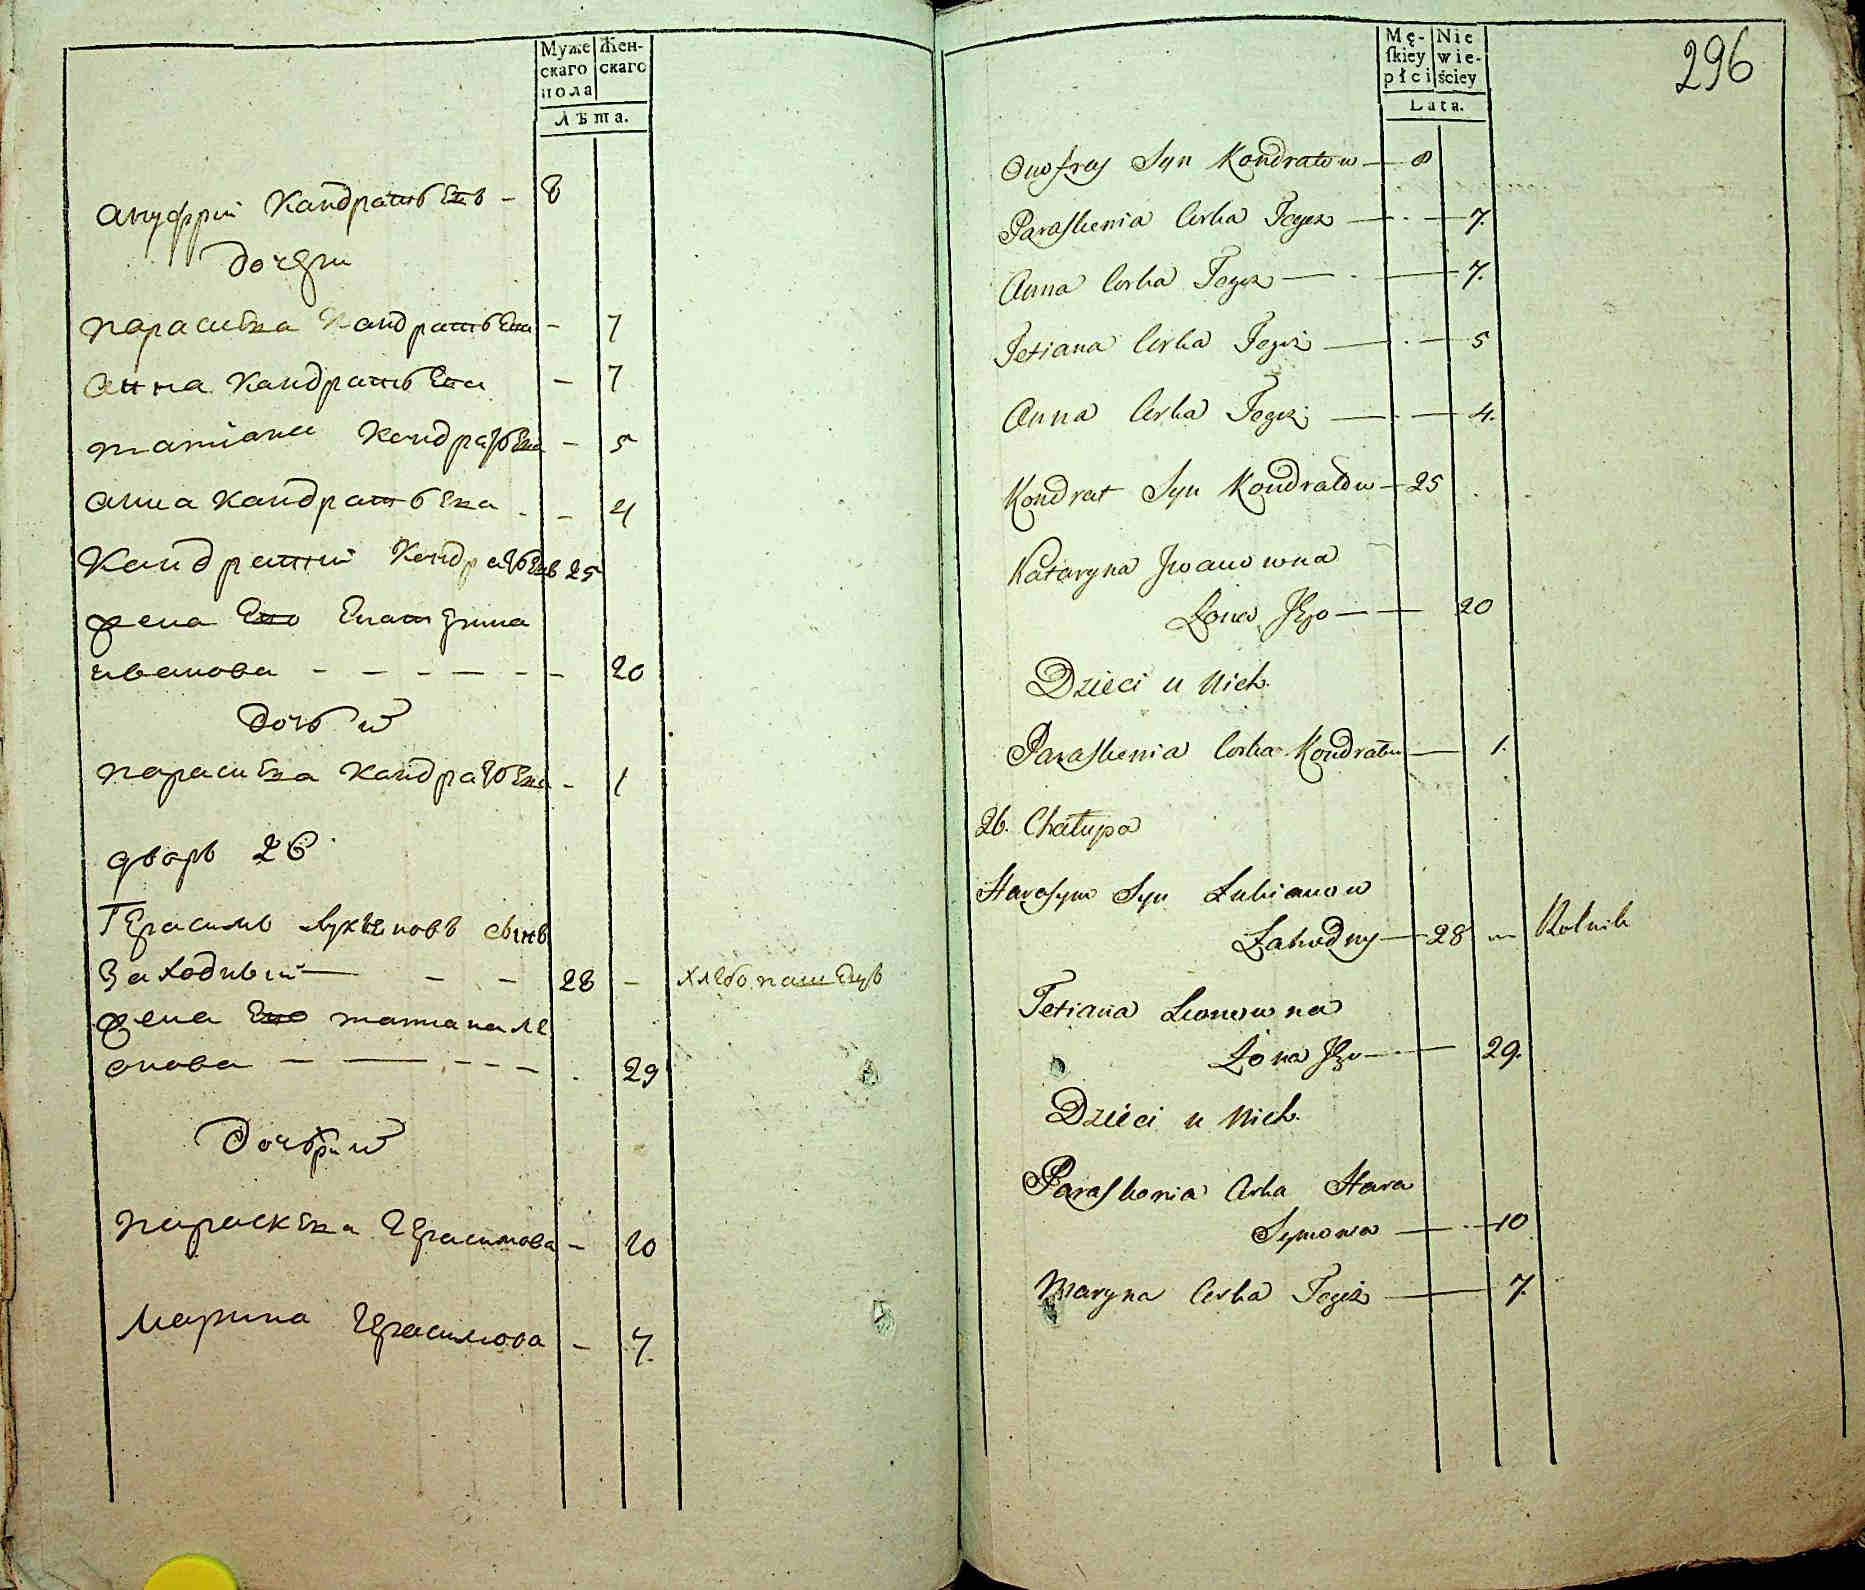 Муже
скаго
пола
Жен-
скаго
Лѣта.
Ануфрий Кандратьевъ - 8
Дочери
Параскева Кандратьева - 7
Анна Кандратьева - 7
Татiана Кандратьева - 5
Анна Кандратьева - - 4
Кандратий Кандратьевъ 25
жена Ево Екатерина
иванова - - - - - - 20
Дочь их
Параскева Кандратьева - 1
дворъ 26
Герасимъ Лукьяновъ сынъ
Заходный - - - 28 - хлебопашецъ
жена Ево татиана Ле
онова - - - - - 29
Дочери их
Параскева Герасимова - 10
Марина Герасимова - 7.
296
Mę-
ſkiey
płci
Nie
wie-
ściey
Lata.
Onofrey Syn Kondratow - 8
Paraskewia Corka Tegoż - . - 7.
Anna Corka Tegoż - . - 7.
Tetiana Corka Tegoż - . - 5
Anna Corka Tegoż - . - 4.
Kondrat Syn Kondratow - 25
Kataryna Jwanowna
Żona Jego - - 20
Dzieci u Nich.
Paraskewia Corka Kondratow - 1.
26. Chałupa
Harasym Syn Lukianow
Zahodny - 28 - Rolnik
Tetiana Leonowna
Żona Jego - . - 29.
Dzieci u Nich.
Paraskewia Corka Hara
Symowa - . - 10
Maryna Corka Tegoż - 7.